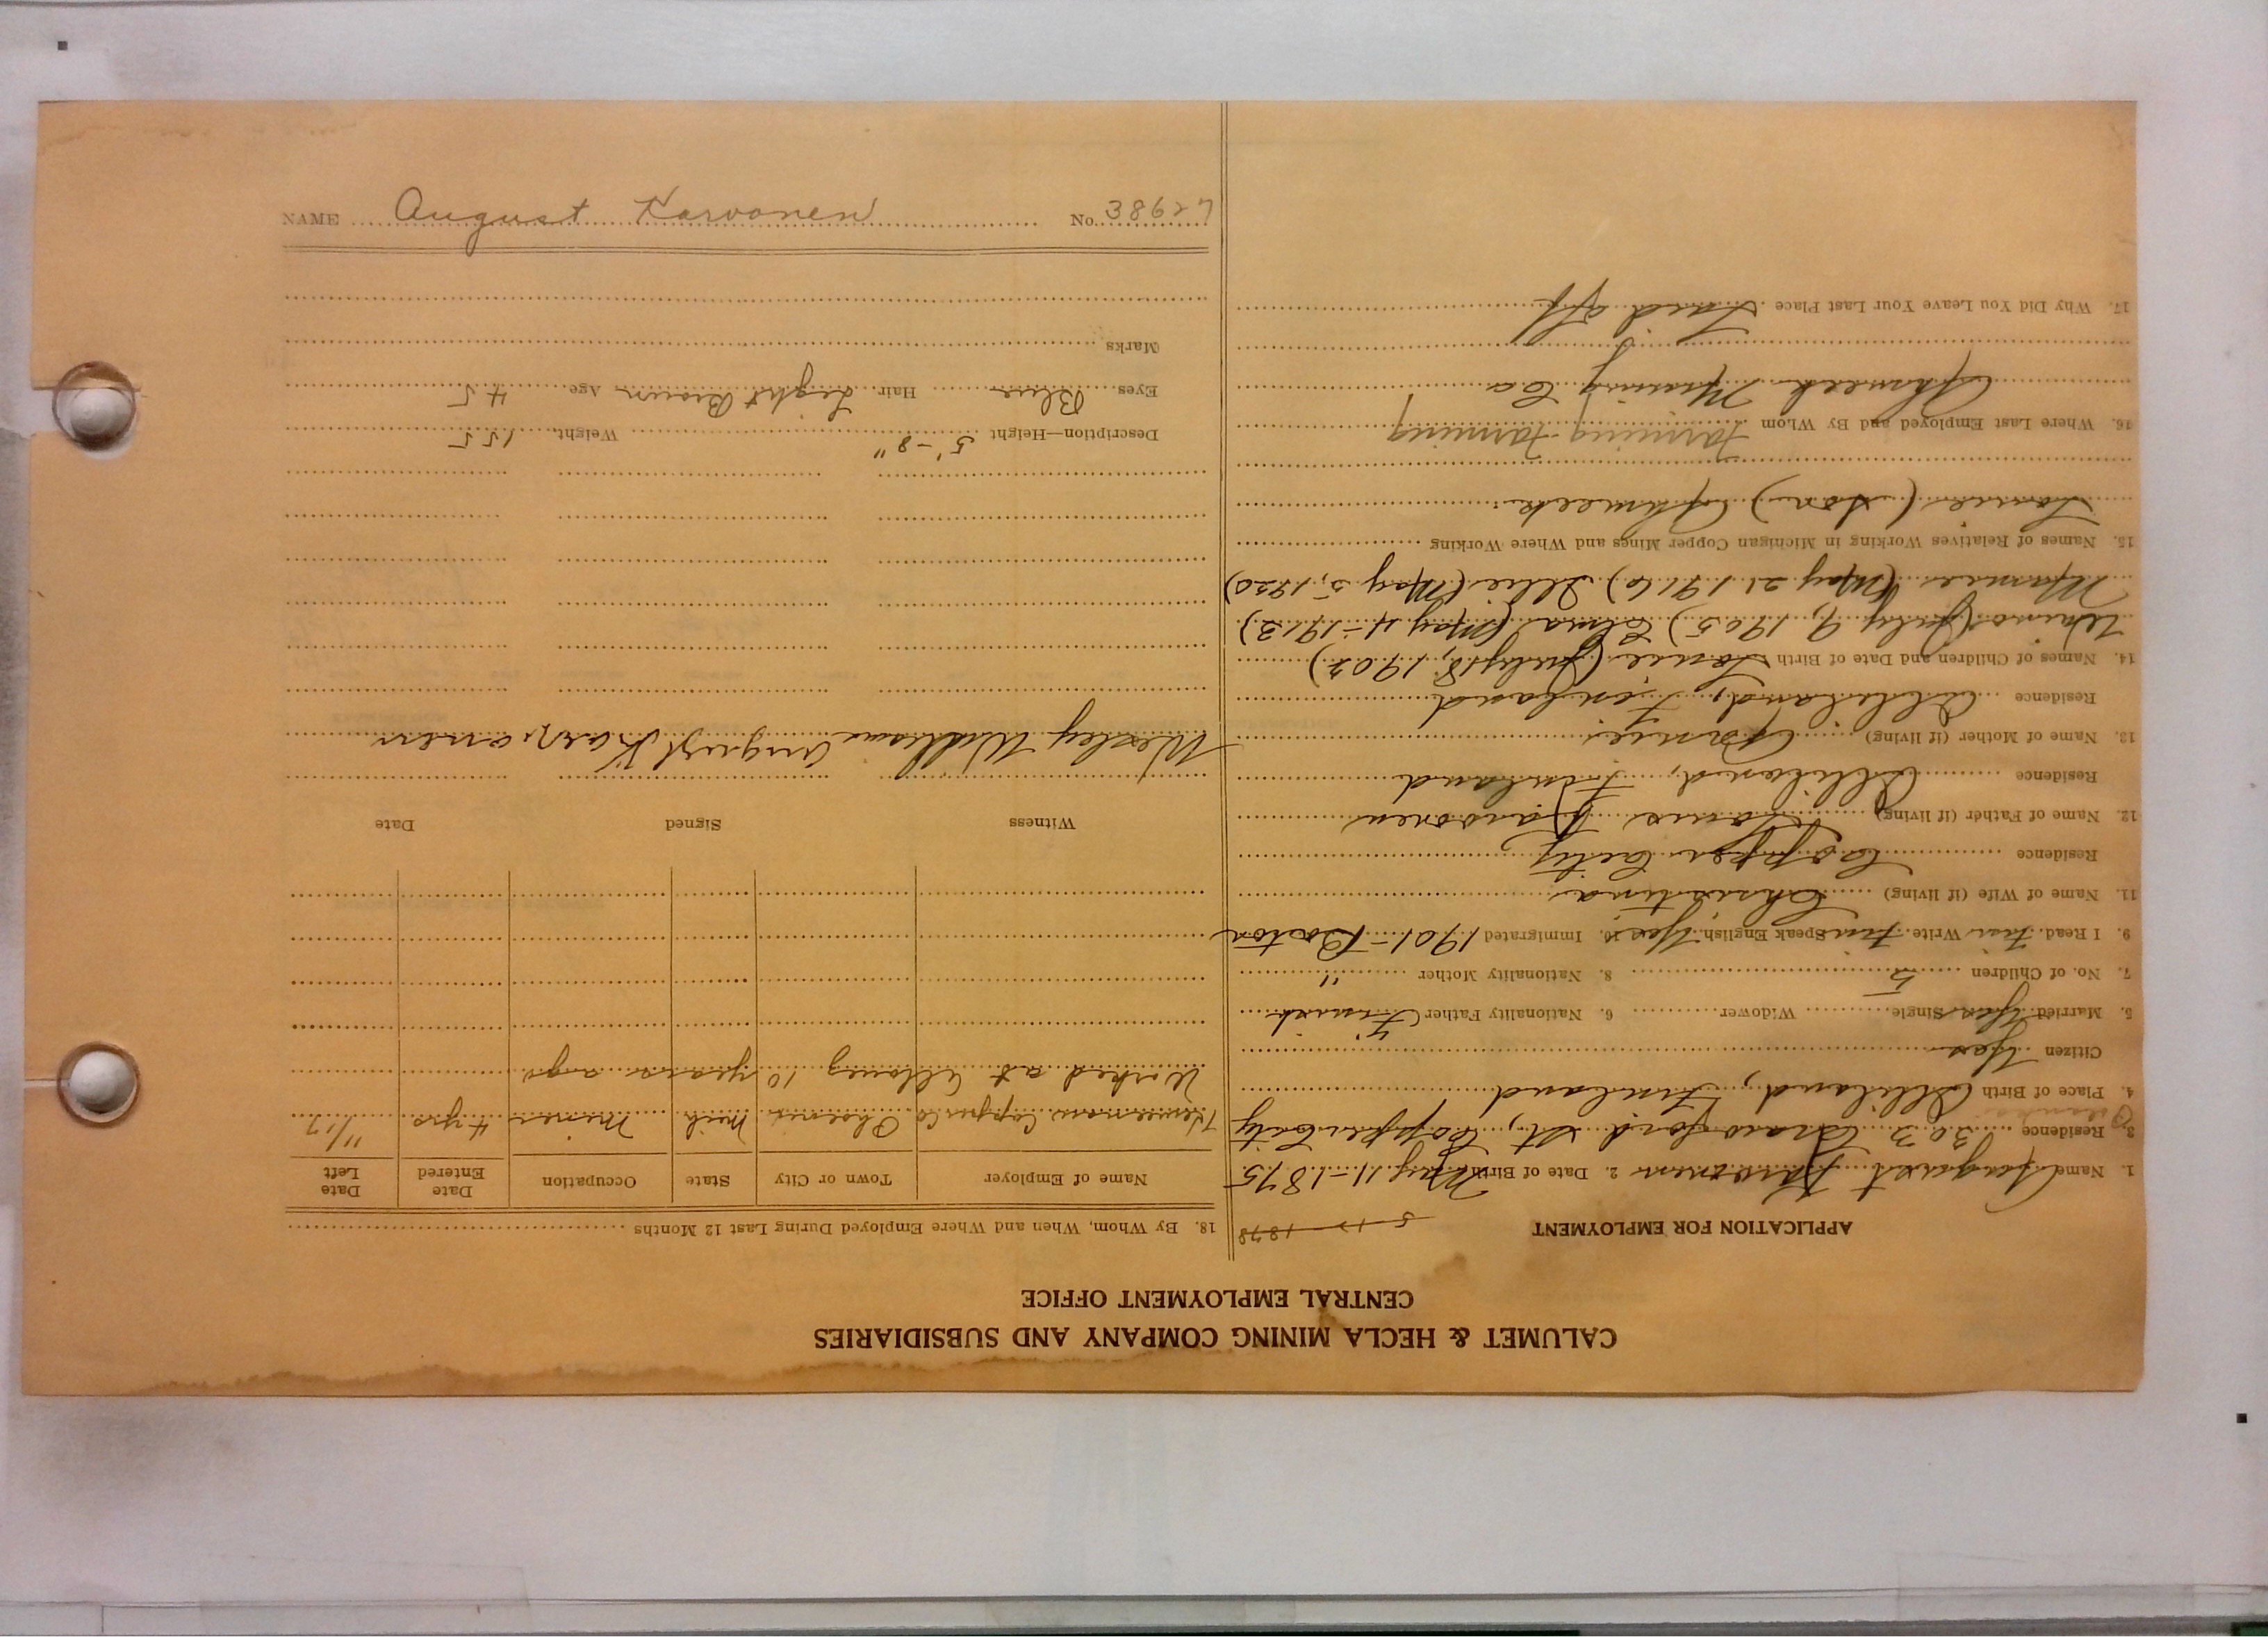 CALUMET & HECLA MINING COMPANY AND SUBSIDIARIES
CENTRAL EMPLOYMENT OFFICE
APPLICATION FOR EMPLOYMENT 5-17-1878
1. Name August Karvonen 2. Date of Birth May 11-1875
3. Residence 303 Crawford St, Copper City
4. Place of Birth Finland
Citizen Yes
5. Married Yes Single Widower 6. Nationality Father Finnish
7. No. of Children 5 8. Nationality Mother "
9. I Read. Fin Write. Fin Speak English. Yes 10. Immigrated 1901-Boston
11. Name of Wife (if living) Christina
Residence Copper City
12. Name of Father (if living) Karvonen
Residence Finland
13. Name of Mother (if living)
Residence Finland
14. Names of Children and Date of Birth (July 18, 1902)
(July 9, 1905) Elma (May 4-1913)
(May 21 1916) (May 5, 1920)
15. Names of Relatives Working in Michigan Copper Mines and Where Working
(son) Ahmeek
16. Where Last Employed and By Whom Farming Farming
Ahmeek Mining Co
17. Why Did You Leave Your Last Place Laid off
18. By Whom, When and Where Employed During Last 12 Months
Name of Employer Town or City State Occupation Date Entered Date Left
Keweenaw Copper Co. Phoenix Mich Miner 4 yrs 11/17
Worked at Allouez 10 years ago
Witness Signed Date
Wesley Williams August Karvonen
Description—Height 5'-8" Weight 155
Eyes Blue Hair Light Brown Age 45
Marks
NAME August Karvonen No. 38627